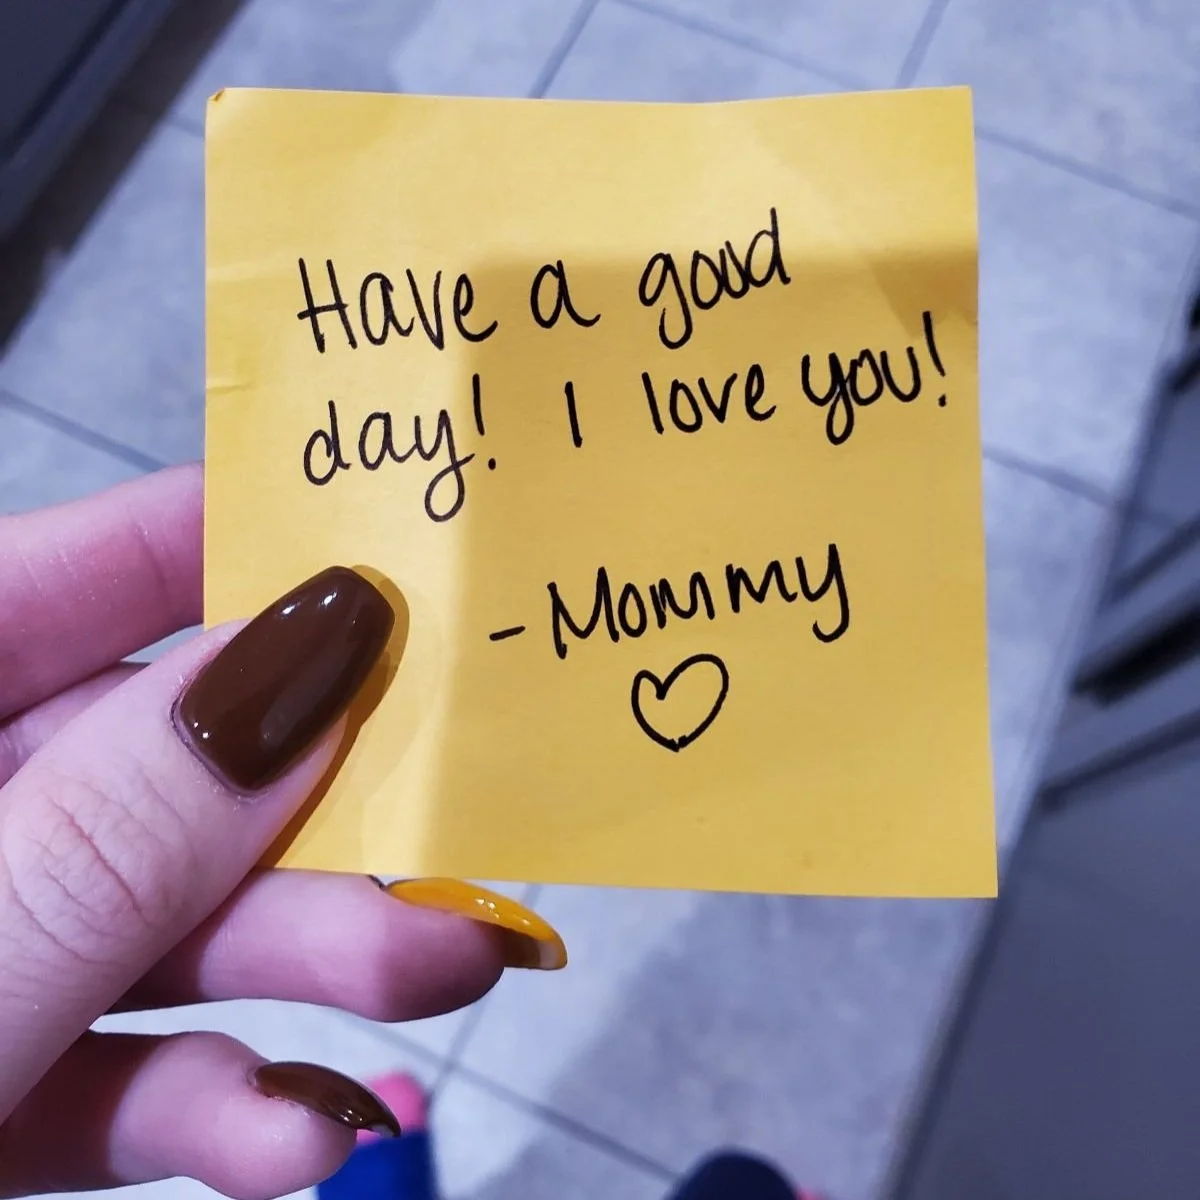 Have a good
day! I love you!
- Mommy